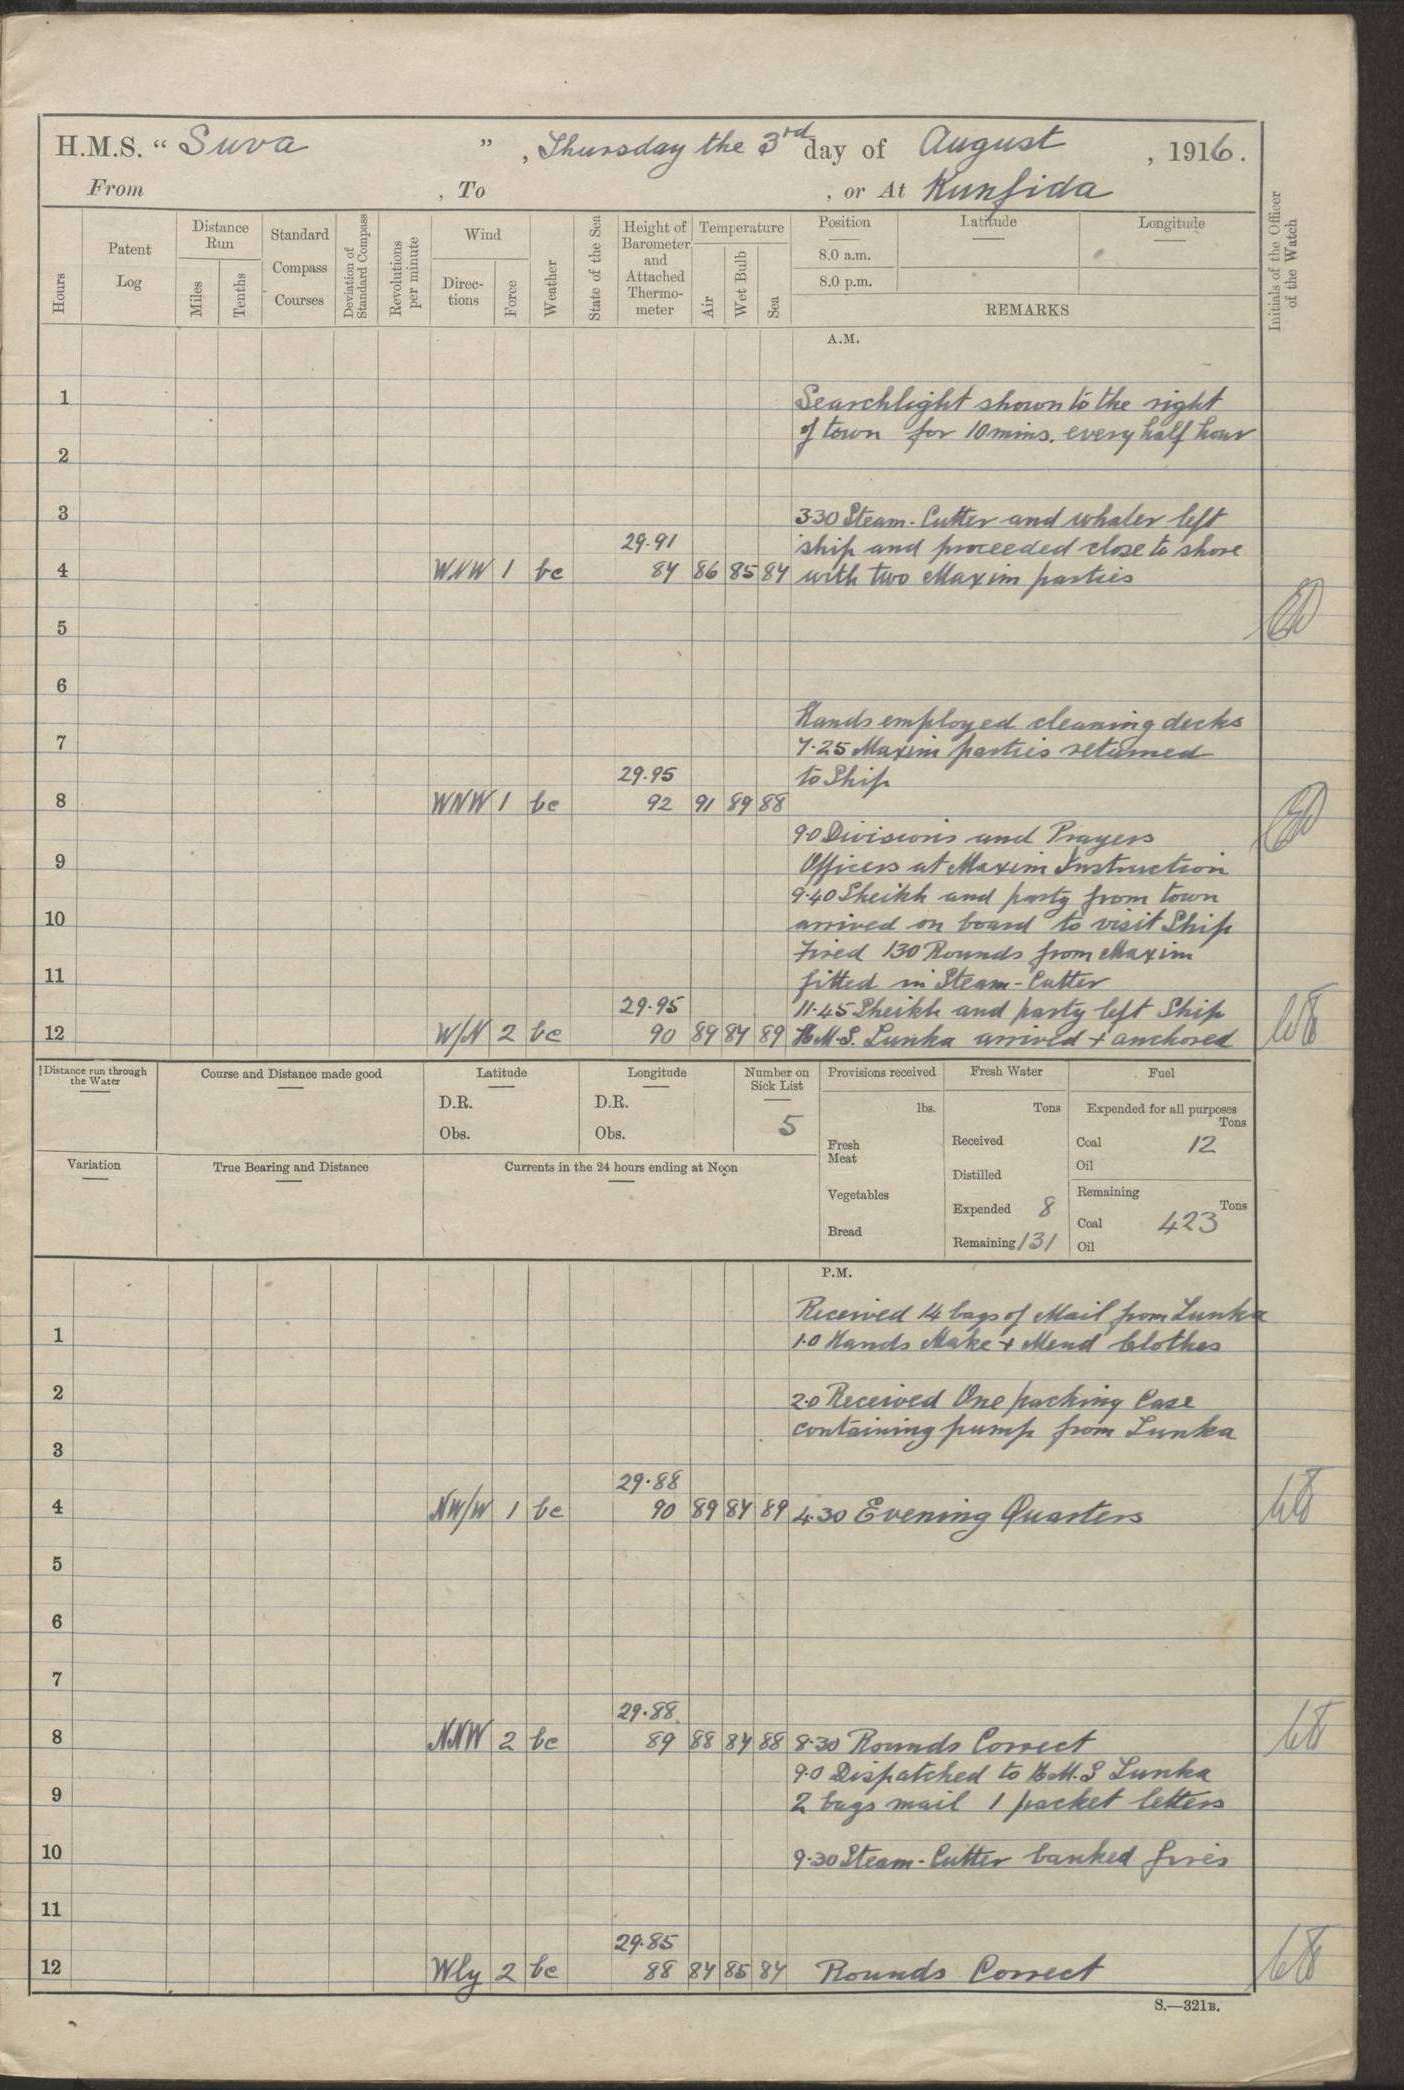 H.M.S. “ Suva ” , Thursday the 3rd day of August , 1916.
From , To , or At Kunfida
Hours
Patent Log
Distance Run
Miles
Tenths
Standard Compass Courses
Deviation of Standard Compass
Revolutions per minute
Wind
Direc-tions
Force
Weather
State of the Sea
Height of Barometer and Attached Thermo-meter
Temperature
Air
Wet Bulb
Sea
Position Latitude Longitude
8.0 a.m.
8.0 p.m.
REMARKS
Initials of the Officer of the Watch
A.M.
1 Searchlight shown to the right
of town for 10 mins. every half hour
2
3 3.30 Steam-Cutter and whaler left
29.91 ship and proceeded close to shore
4 WNW 1 bc 84 86 85 84 with two Maxim parties
5
6
Hands employed cleaning decks
7 7.25 Maxim parties returned
29.95 to Ship
8 WNW 1 bc 92 91 89 88
9.0 Divisions and Prayers
9 Officers at Maxim Instruction
9.40 Sheikh and party from town
10 arrived on board to visit Ship
Fired 130 Rounds from Maxim
11 fitted in Steam-Cutter
29.95 11.45 Sheikh and party left Ship
12 W/N 2 bc 90 89 84 89 H.M.S. Lunka arrived + anchored
Distance run through the Water
Course and Distance made good
Latitude
D.R.
Obs.
Longitude
D.R.
Obs.
Number on Sick List
5
Provisions received
lbs.
Fresh Meat
Vegetables
Bread
Fresh Water
Tons
Received
Distilled
Expended 8
Remaining 131
Fuel
Expended for all purposes
Tons
Coal 12
Oil
Remaining
Tons
Coal 423
Oil
Variation
True Bearing and Distance
Currents in the 24 hours ending at Noon
P.M.
Received 14 bags of Mail from Lunka
1 1.0 Hands Make + Mend Clothes
2 2.0 Received One packing Case
containing pump from Lunka
3
29.88
4 NW/W 1 bc 90 89 84 89 4.30 Evening Quarters
5
6
7
29.88
8 NNW 2 bc 89 88 84 88 8.30 Rounds Correct
9.0 Dispatched to H.M.S Lunka
9 2 bags mail 1 packet letters
10 9.30 Steam-Cutter banked fires
11
29.85
12 Wly 2 bc 88 84 85 84 Rounds Correct
S.—321B.